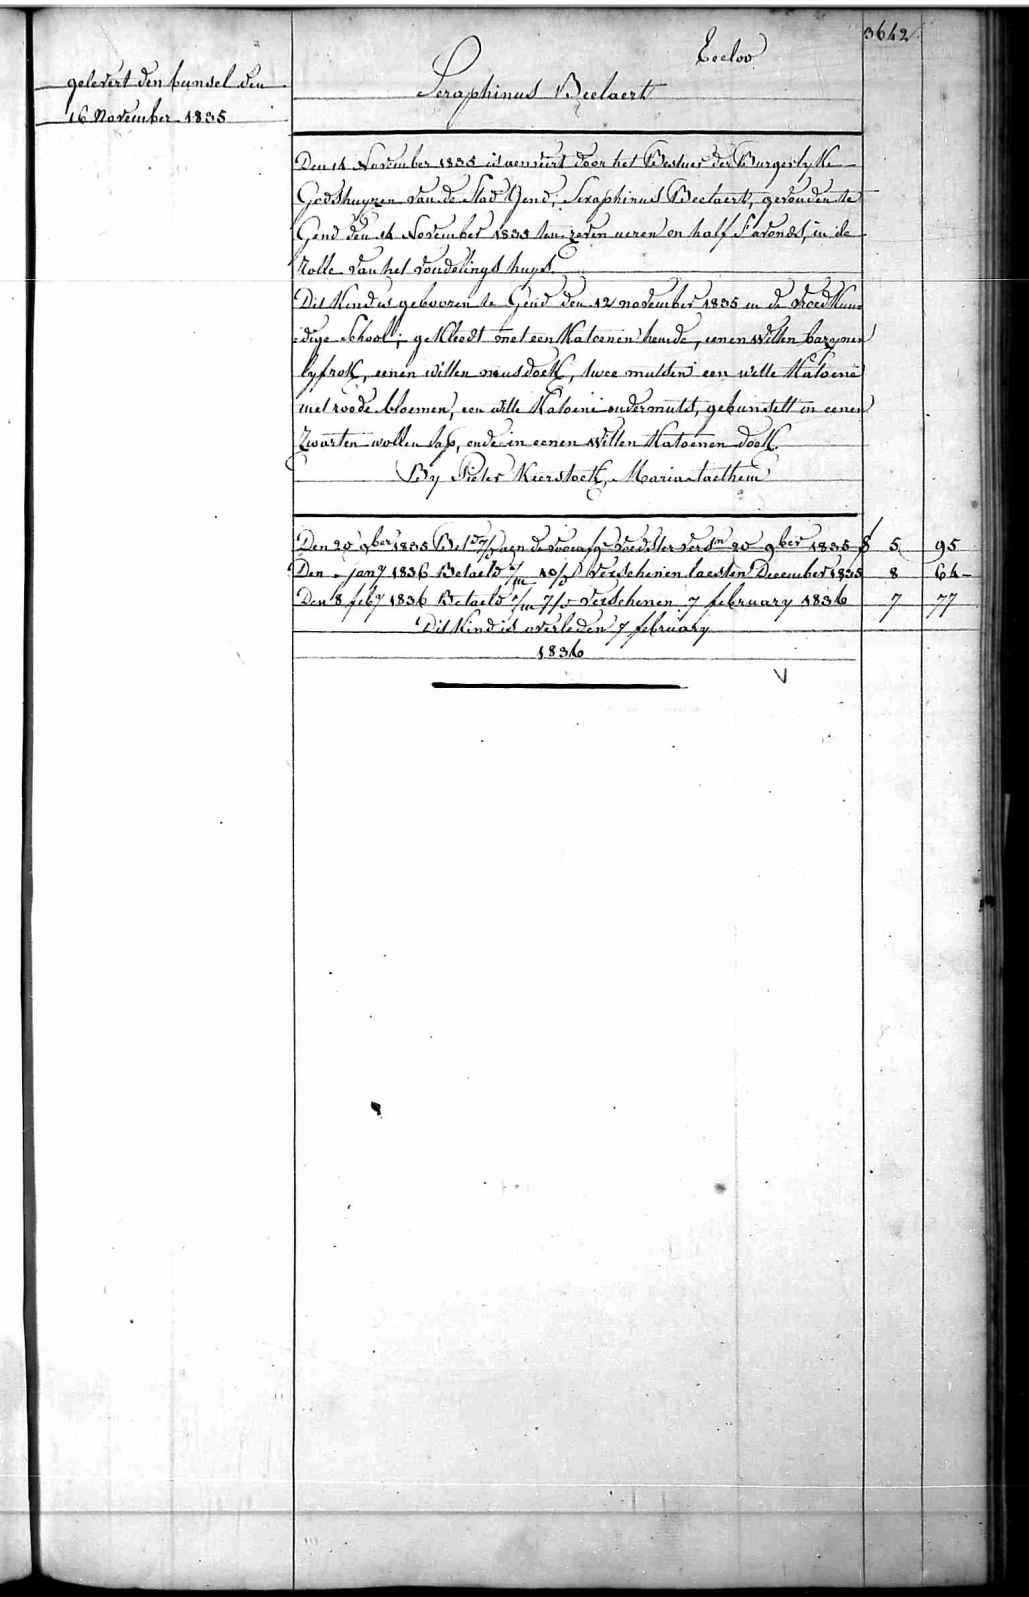 3642
Eecloo
gelevert den bunsel den
16 November 1835
Seraphinus Beelaert
Den 14 November 1835 is aenveert door het Bestuer der Burgerlyke
Godshuyzen van de Stad Gend, Seraphinus Beelaert, gevonden te
Gend den 14 November 1835 ten zeven ueren en half s'avonds, in de
rolle van het vondelings huys.
Dit Kind is gebooren te Gend den 12 november 1835 in de vroedkun=
=dige School; gekleedt met een Katoenen hemde, eenen witten bazynen
lyfrok, eenen witten neusdoek, twee mutsen een witte Katoene
met roode bloemen, een witte Katoene ondermuts, gebunselt in eenen
Zwarten wollen lap, ende in eenen witten Katoenen doek.
By Pieter Keerstock, Maria taethem
Den 20 9ber 1835 Bet. aen de voorasg. voedster vers. 20 9ber 1835 5 95
Den jany 1836 Betaeld 10/ Verschenen laesten December 1835 8 64
Den 8 feby 1836 Betaeld 7/ verschenen 7 february 1836 7 77
Dit Kind is overleden 7 february
1836